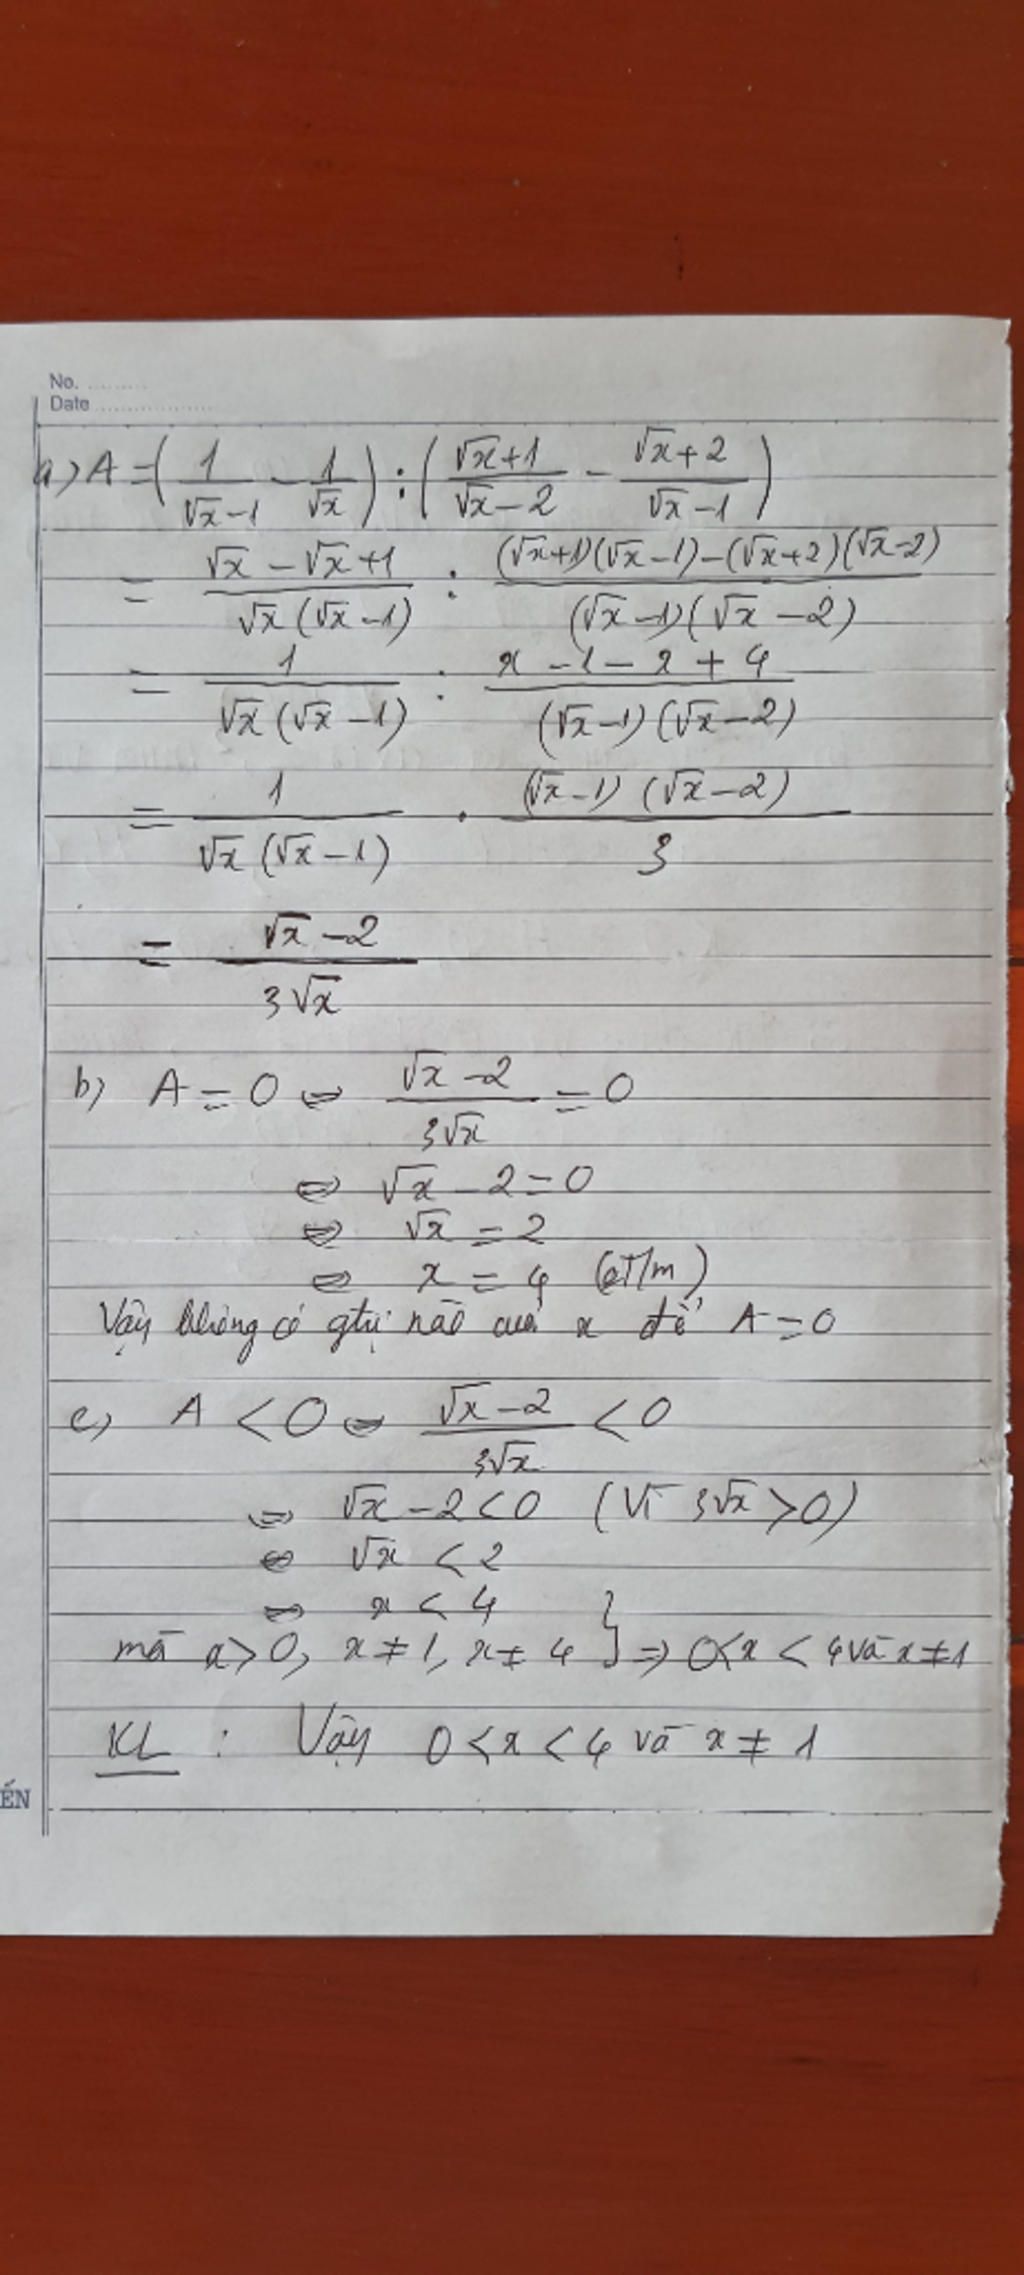 No. .........
Date ...................
a) A = (1/(√x-1) - 1/√x) : ((√x+1)/(√x-2) - (√x+2)/(√x-1))
= (√x - √x+1)/(√x(√x-1)) : ((√x+1)(√x-1)-(√x+2)(√x-2))/((√x-1)(√x-2))
= 1/(√x(√x-1)) : (x-1-x+4)/((√x-1)(√x-2))
= 1/(√x(√x-1)) . ((√x-1)(√x-2))/3
= (√x-2)/(3√x)
b) A = 0 ⇔ (√x-2)/(3√x) = 0
⇔ √x - 2 = 0
⇔ √x = 2
⇔ x = 4
Vậy không có gtrị nào của x để A = 0
c) A < 0 ⇔ (√x-2)/(3√x) < 0
⇔ √x - 2 < 0 (Vì 3√x > 0)
⇔ √x < 2
⇔ x < 4
mà x > 0, x ≠ 1, x ≠ 4 } ⇒ 0 < x < 4 và x ≠ 1
KL : Vậy 0 < x < 4 và x ≠ 1
ẾN